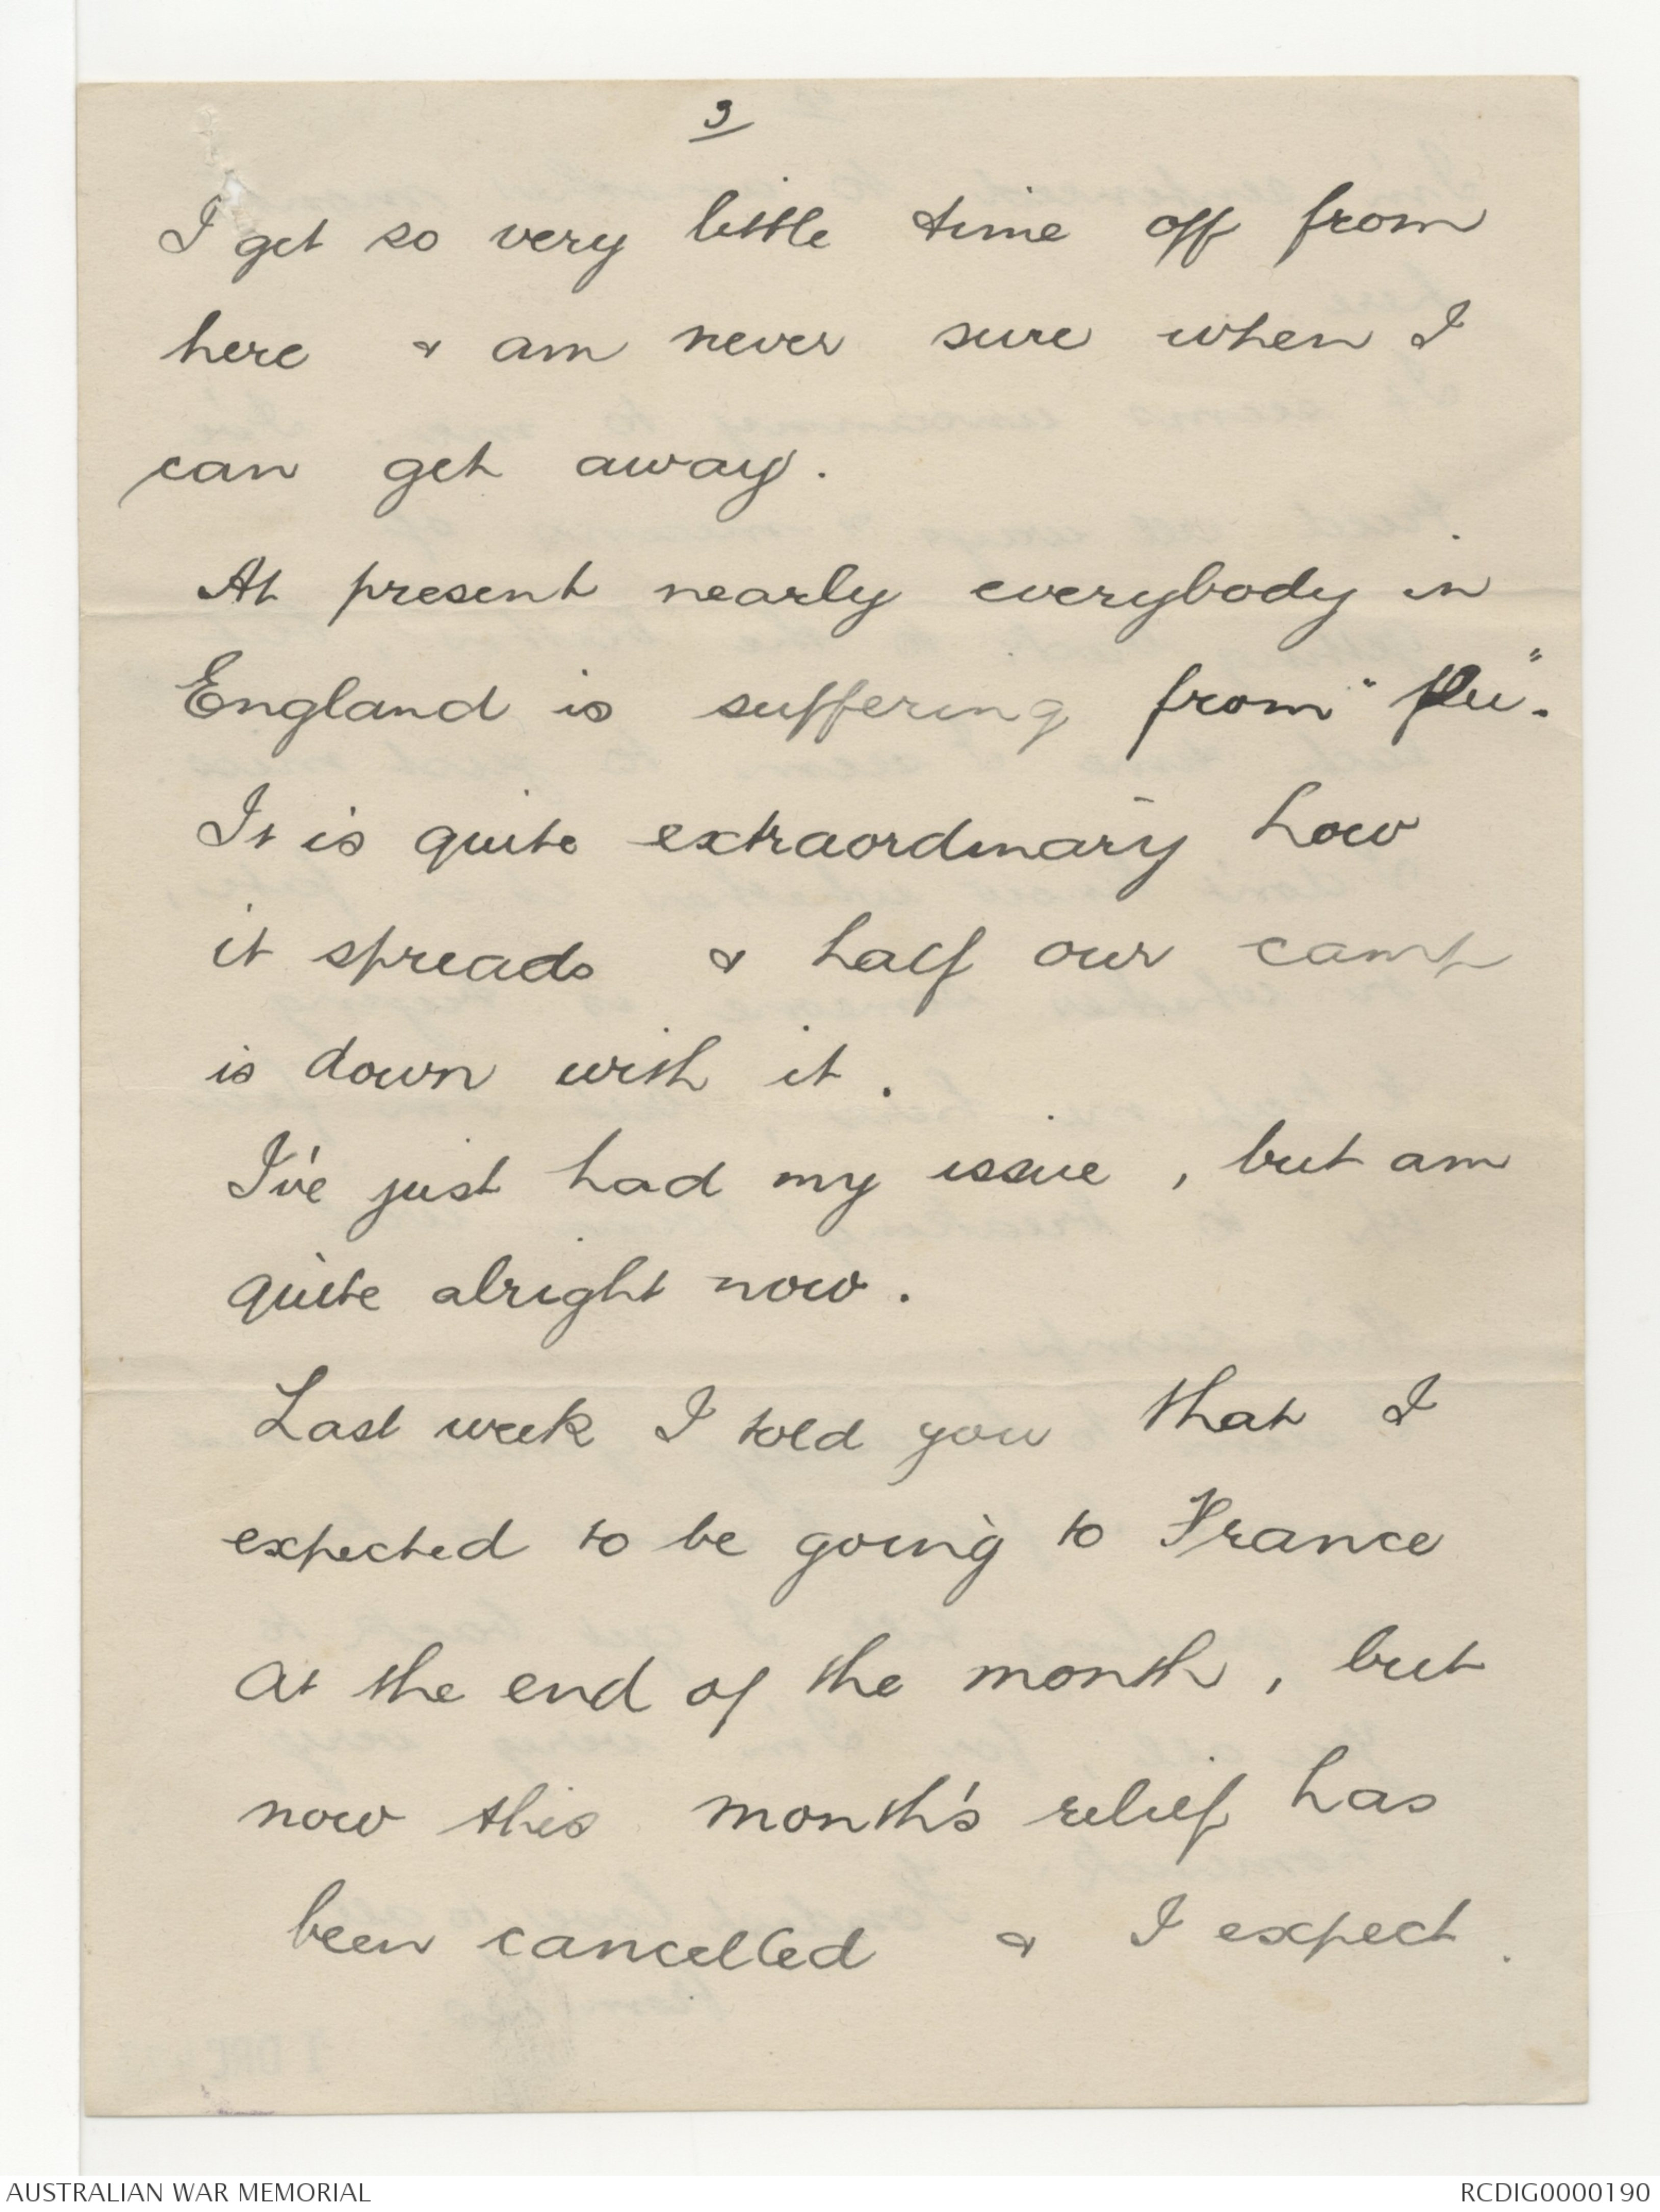 3
I get so very little time off from
here & am never sure when I
can get away.
At present nearly everybody in
England is suffering from "flu".
It is quite extraordinary how
it spreads & half our camp
is down with it.
I've just had my issue, but am
quite alright now.
Last week I told you that I
expected to be going to France
at the end of the month, but
now this month's relief has
been cancelled & I expect.
AUSTRALIAN WAR MEMORIAL
RCDIG0000190